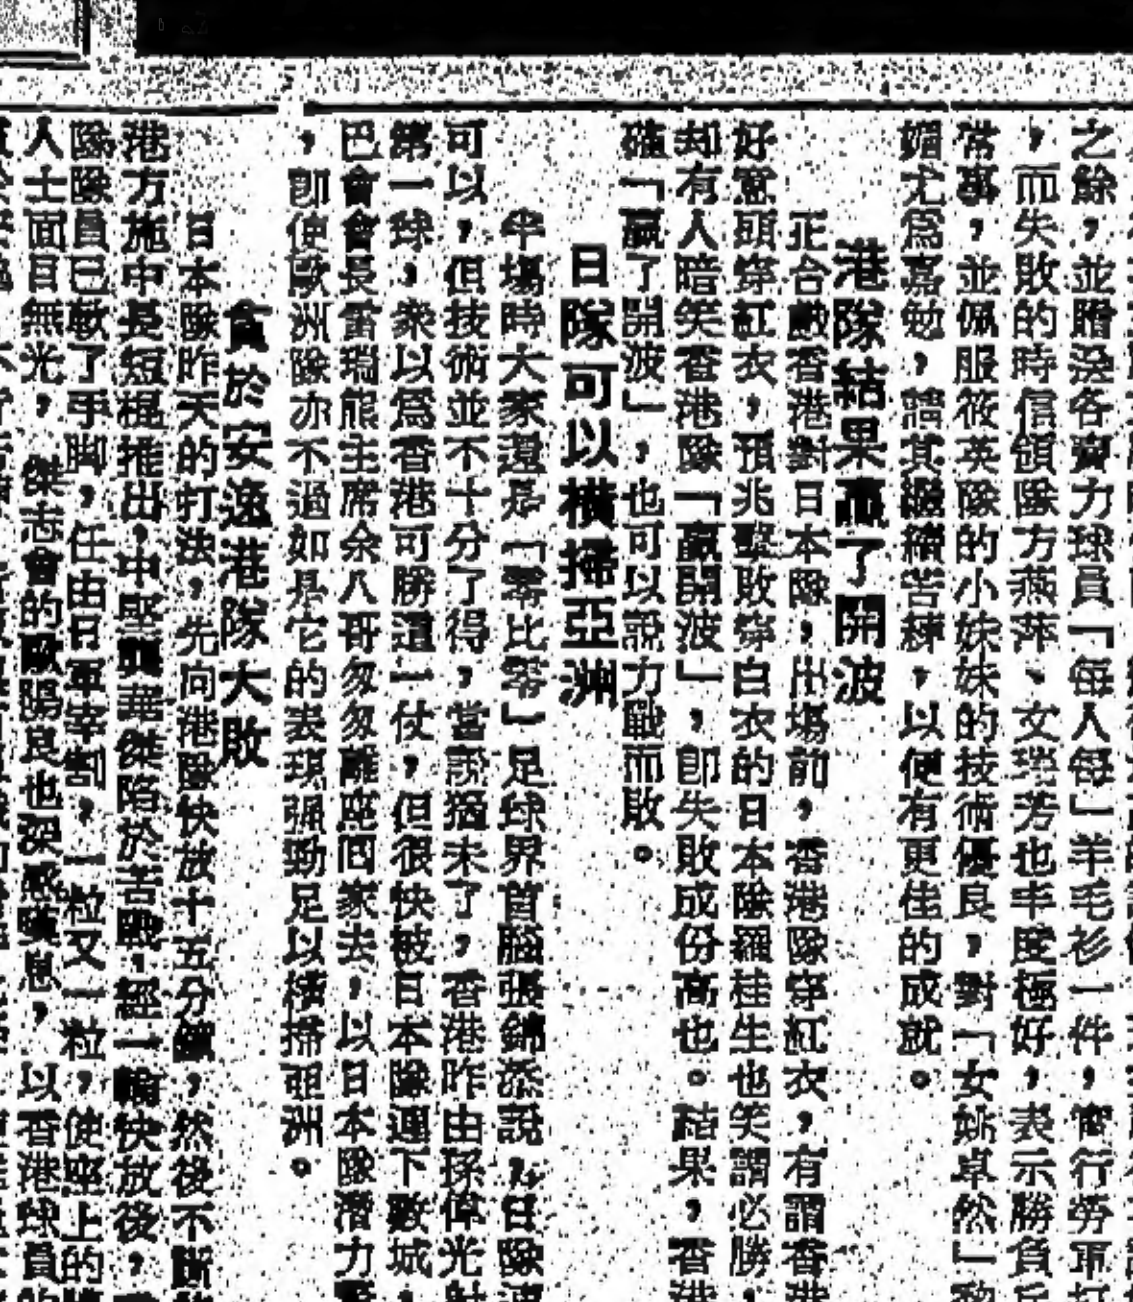 之餘，並贈送各賣力球員「每人每」羊毛衫一件，實行勞軍
，而失敗的時信領隊方燕萍、女瑞芳也丰度極好，表示勝負
常事，並佩服筱英隊的小妹妹的技術優良，對「女姚卓然」黎
媚尤為嘉勉，請其繼續苦練，以便有更佳的成就。
港隊結果贏了開波
正合殿香港對日本隊，出場前，香港隊穿紅衣，有謂香港
好意頭穿紅衣，預兆擊敗穿白衣的日本隊羅桂生也笑謂必勝，
却有人暗笑香港隊「贏開波」，卽失敗成份高也。結果，香港
確「贏了開波」，也可以說力戰而敗。
日隊可以橫掃亞洲
半場時大家還是「零比零」足球界首腦張錦添說，日隊
可以，但技術並不十分了得，當說猶未了，香港昨由孫偉光射
第一球，衆以爲香港可勝這一仗，但很快被日本隊連下數城，
巴會會長雷瑞熊主席余八哥匆匆離座回家去，以日本隊潛力
，卽使歐洲隊亦不過如是它的表現強勁足以橫掃亞洲。
貪於安逸港隊大敗
日本隊昨天的打法，先向港隊快放十五分鐘，然後不斷
港方施中長短棍推出，中堅劉華傑陷於苦戰，經一輪快放後，
隊隊員已軟了手脚，任由日軍宰割，一粒又一粒，使座上的
人士面目無光，傑志會的歐陽良也深感嘆息，以香港球員的